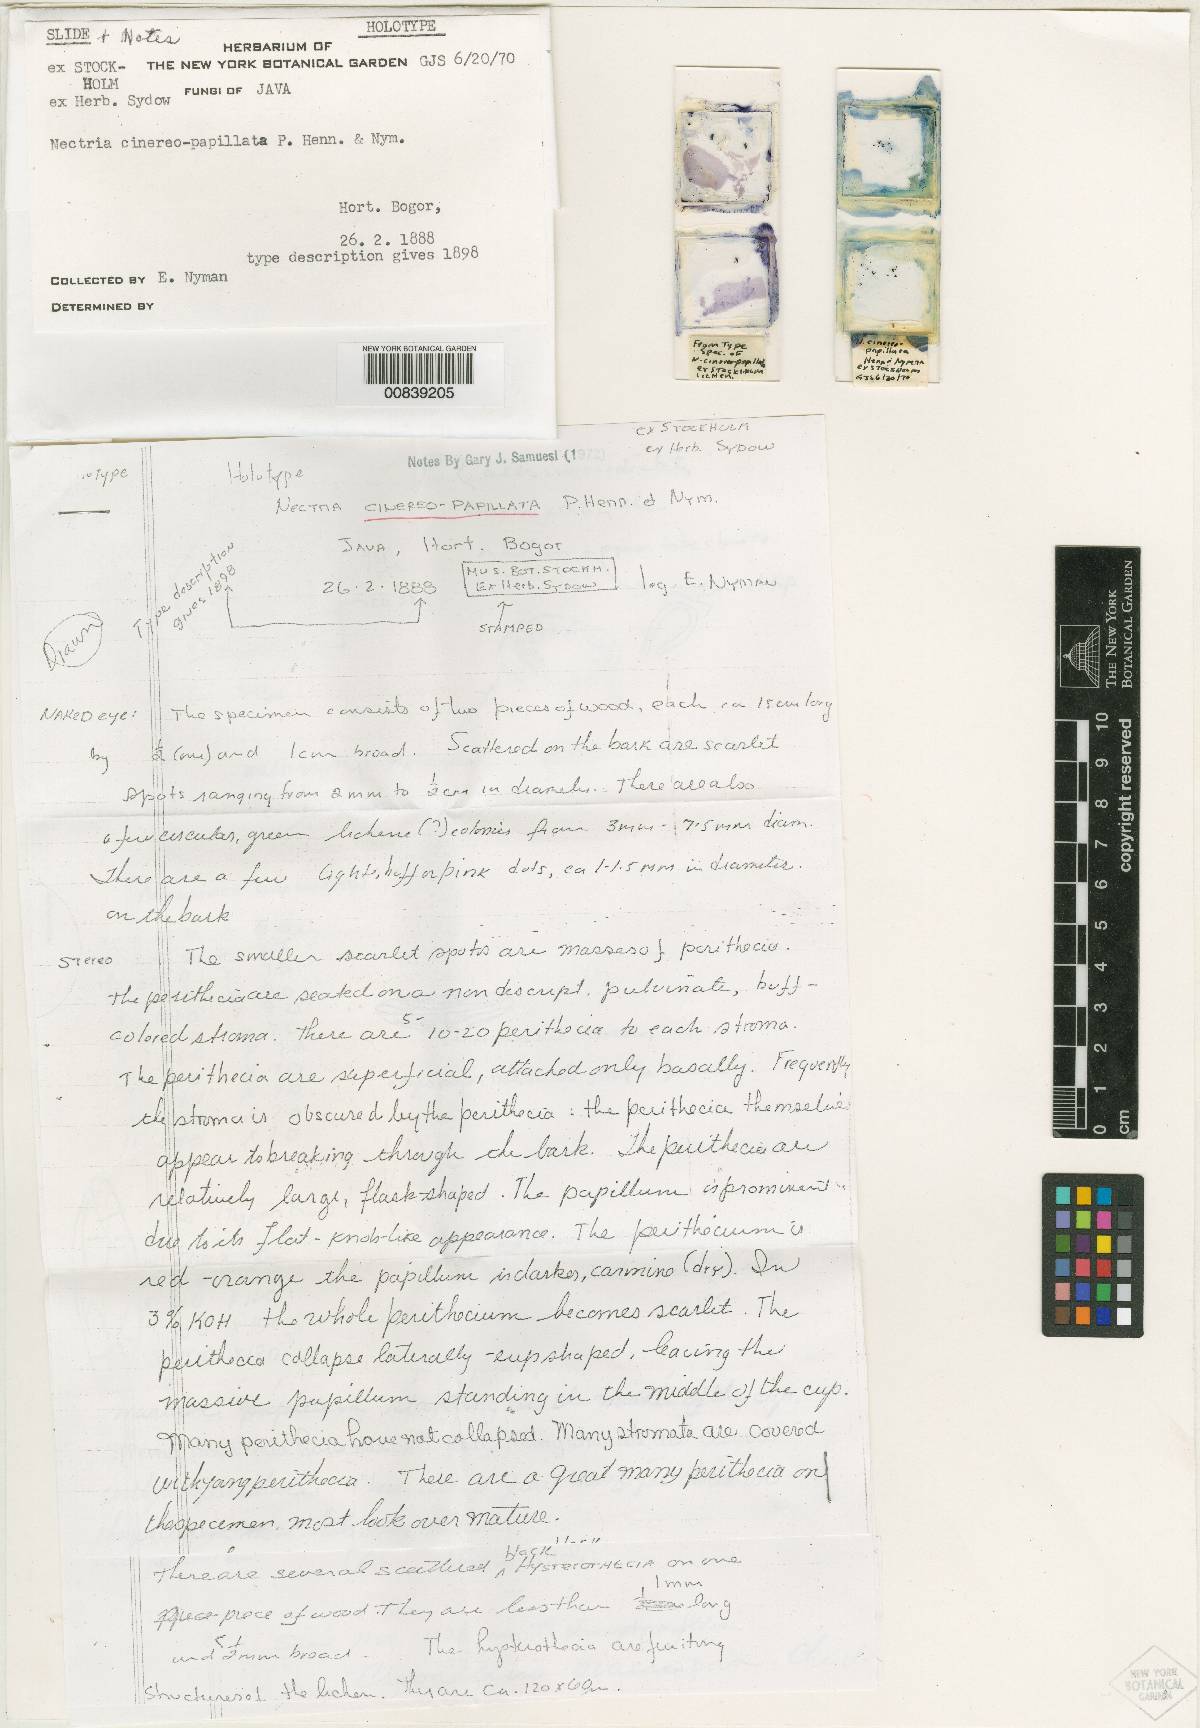 SLIDE + Notes
HOLOTYPE
HERBARIUM OF
ex STOCK-
HOLM
THE NEW YORK BOTANICAL GARDEN GJS 6/20/70
ex Herb. Sydow
FUNGI OF JAVA
Nectria cinereo-papillata P. Henn. & Nym.
Hort. Bogor,
26. 2. 1888
type description gives 1898
COLLECTED BY E. Nyman
DETERMINED BY
NEW YORK BOTANICAL GARDEN
00839205
From Type
Spec. of
N. cinereo-papillata
ex STOCKHOLM
N. cinereo-
papillata
Henn & Nym
ex STOCKHOLM
GJS 6/20/70
ex STOCKHOLM
ex Herb. Sydow
Notes By Gary J. Samuesl (1972)
type
Holotype
NECTRIA CINEREO-PAPILLATA P. Henn. & Nym.
JAVA, Hort. Bogor
26.2.1888
MUS. BOT. STOCKH.
Ex Herb. SYDOW
leg E. NYMAN
Type description
gives 1898
STAMPED
Drawn
NAKED eye: The specimen consists of two pieces of wood, each ca 15 cm long
by ½ (one) and 1 cm broad. Scattered on the bark are scarlet
spots ranging from 2 mm to ½ cm in diameter. There are also
a few circular, green lichen (?) colonies from 3 mm - 7.5 mm diam.
There are a few light, buff or pink dots, ca 1-1.5 mm in diameter.
on the bark
Stereo The smaller scarlet spots are masses of perithecia.
The perithecia are seated on a nondescript, pulvinate, buff-
colored stroma. There are 5- 10-20 perithecia to each stroma.
The perithecia are superficial, attached only basally. Frequently
the stroma is obscured by the perithecia: the perithecia themselves
appear to breaking through the bark. The perithecia are
relatively large, flask-shaped. The papillum is prominent
due to its flat-knob-like appearance. The perithecium is
red-orange the papillum is darker, carmine (dry). In
3% KOH the whole perithecium becomes scarlet. The
perithecia collapse laterally - cup shaped, leaving the
massive papillum standing in the middle of the cup.
Many perithecia have not collapsed. Many stromata are covered
with young perithecia. There are a great many perithecia on
the specimen, most look over mature.
There are several scattered black "HYSTEROTHECIA on one
piece of wood. They are less than 1mm long
and .5 mm broad. The hysterothecia are fruiting
structures of the lichen. They are ca. 120 x 60µ.
THE NEW YORK
BOTANICAL GARDEN
copyright reserved
0 1 2 3 4 5 6 7 8 9 10
cm
NEW YORK
BOTANICAL
GARDEN